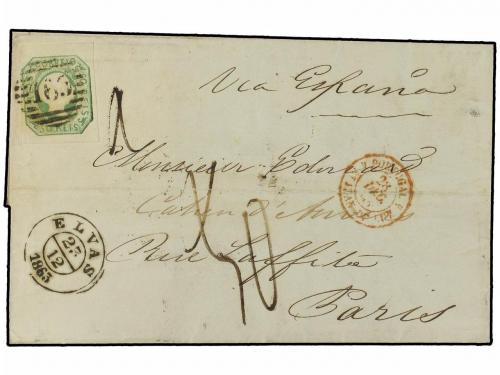 Via España
Monsieur Edouard
Cahen d'Anvers
Rue Laffite
Paris
40
ELVAS
23
12
1863
50 REIS